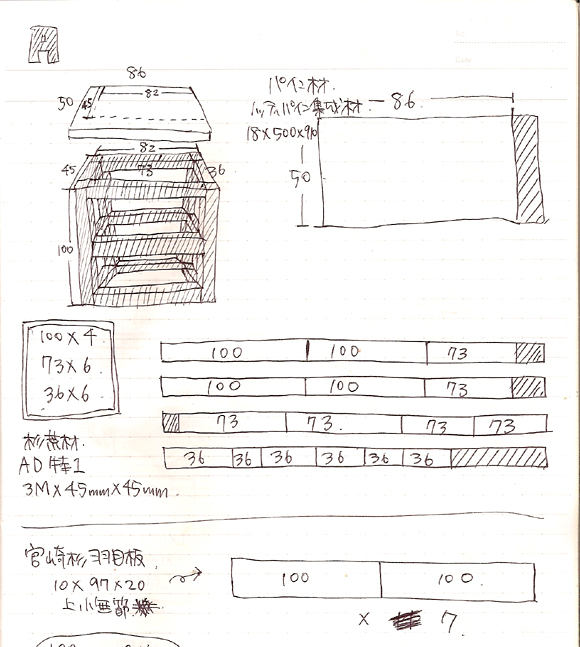 A
86
50 45 82
82
45 73 36
100
パイン材
ノッティパイン集成材 86
18×500×910
50
100×4
73×6
36×6
100 100 73
100 100 73
73 73 73 73
36 36 36 36 36 36
杉荒材
AD 特1
3M×45mm×45mm
宮崎杉羽目板
10×97×20
上小無節
100 100
× 7